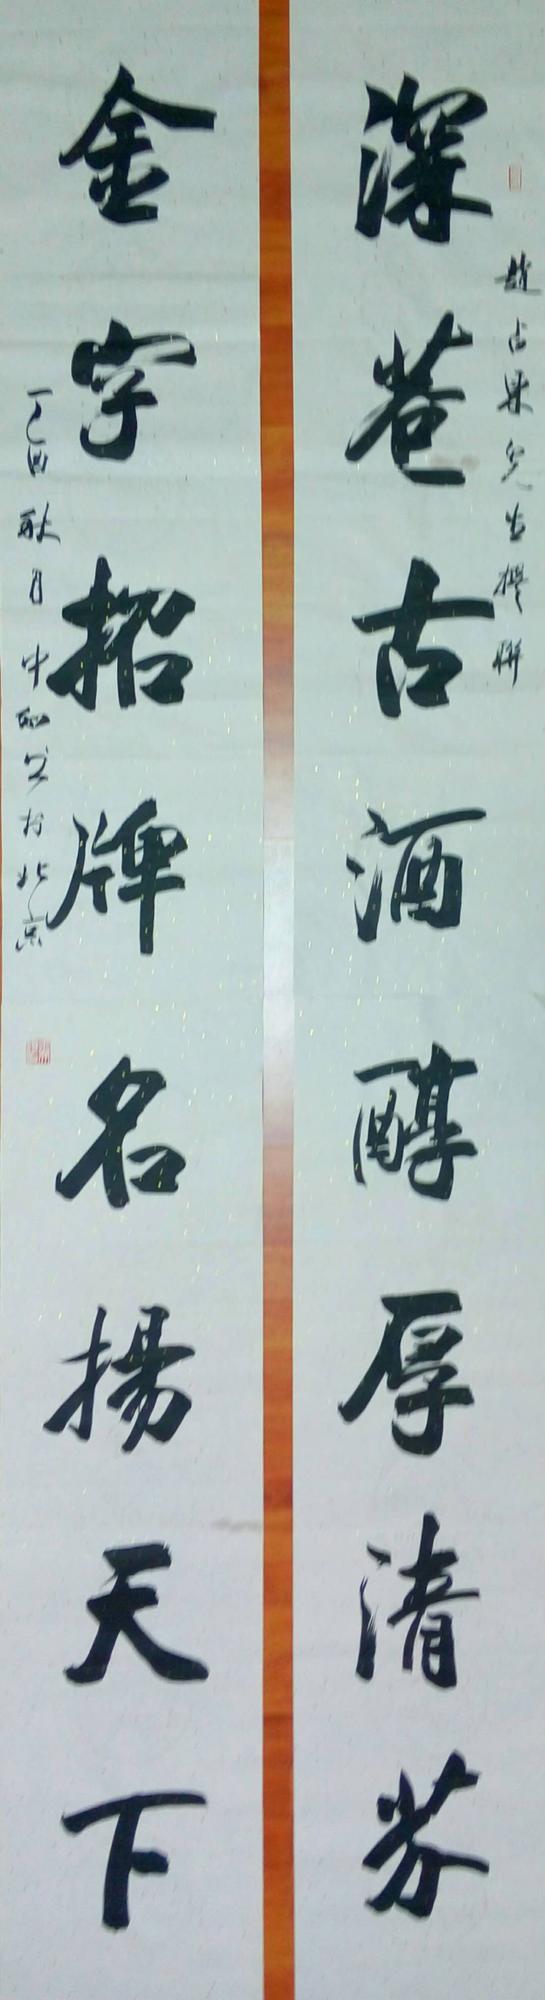 趙占果先生撰联
深巷古酒醇厚清芬
金字招牌名揚天下
丁酉秋月中和书於北京